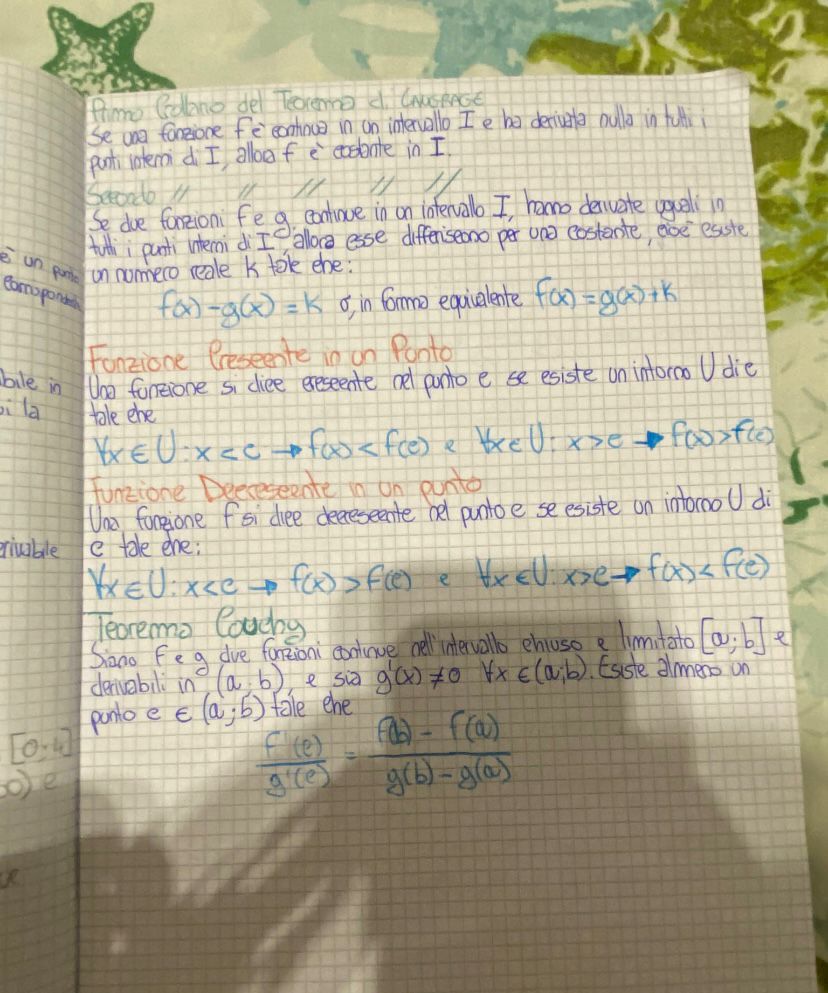 Primo Corollario del Teorema di LAGRANGE
Se una funzione f è continua in un intervallo I e ha derivata nulla in tutti i
punti interni di I, allora f è costante in I.
Secondo // // // // //
Se due funzioni f e g continue in un intervallo I, hanno derivate uguali in
tutti i punti interni di I, allora esse differiscono per una costante, cioè esiste
un numero reale k tale che:
f(x)-g(x) = k o, in forma equivalente f(x) = g(x)+k
Funzione Crescente in un Punto
Una funzione si dice crescente nel punto c se esiste un intorno U di c
tale che
∀x ∈ U: x < c → f(x) < f(c) e ∀x ∈ U: x > c → f(x) > f(c)
Funzione Decrescente in un punto
Una funzione f si dice decrescente nel punto c se esiste un intorno U di
c tale che:
∀x ∈ U: x < c → f(x) > f(c) e ∀x ∈ U: x > c → f(x) < f(c)
Teorema Cauchy
Siano f e g due funzioni continue nell'intervallo chiuso e limitato [a;b] e
derivabili in (a;b), e sia g'(x) ≠ 0 ∀x ∈ (a;b). Esiste almeno un
punto c ∈ (a;b) tale che
f'(c) / g'(c) = f(b) - f(a) / g(b) - g(a)
è un punto
bile in
i la
erivabile
[0;4]